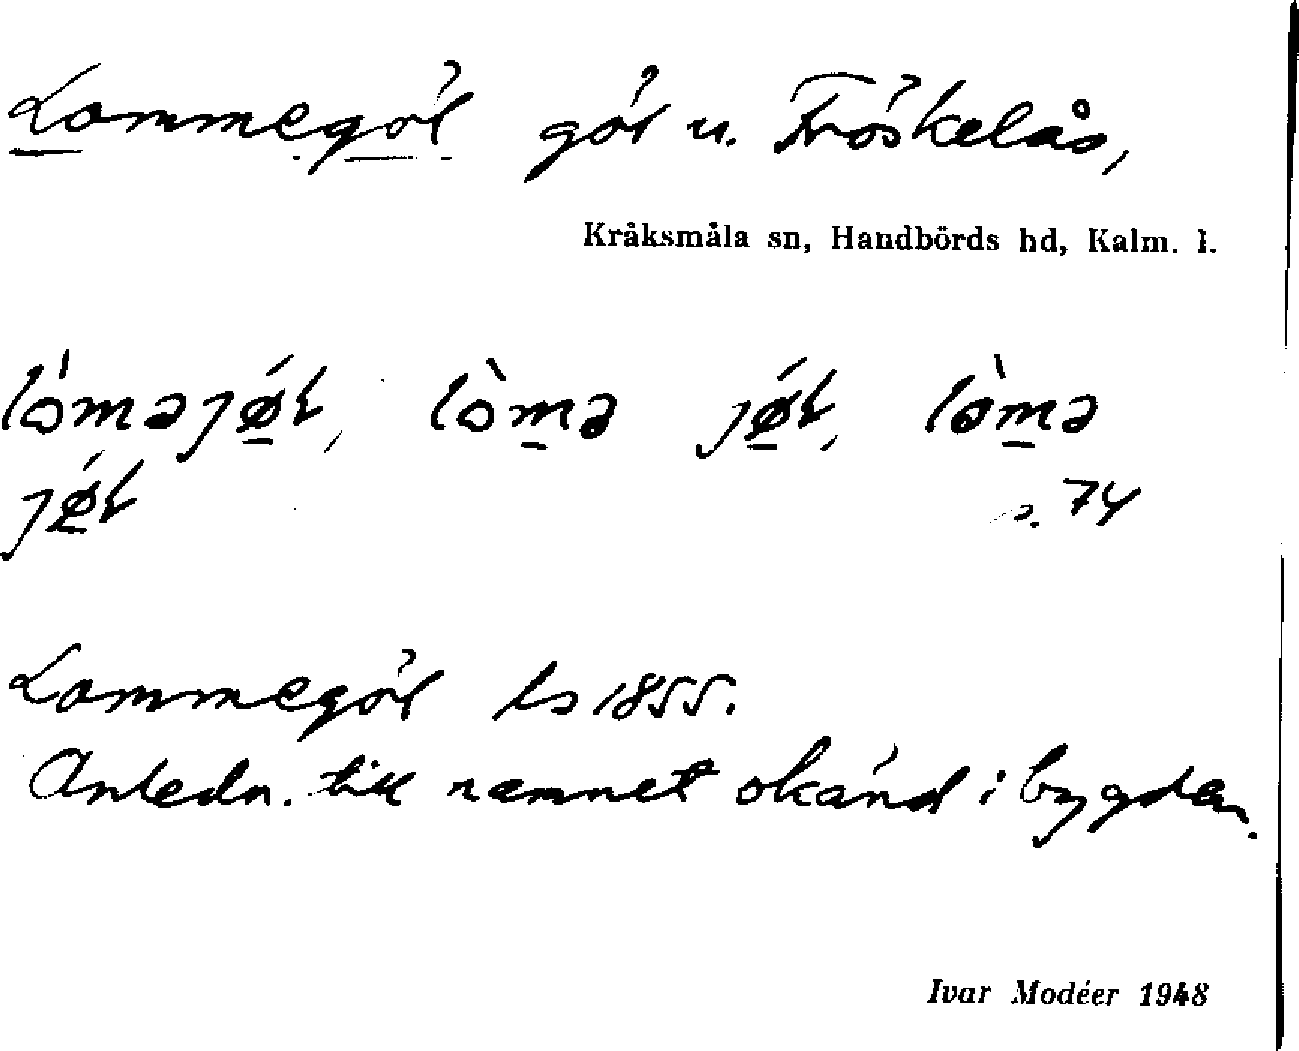 Lommegöl göl u. Fröskelås,
Kråksmåla sn, Handbörds hd, Kalm. l.
lòməjǿ̠ɫ, lòm̠ə jǿ̠ɫ, lòm̠ə
jǿ̠ɫ s. 74
Lommegöl ls 1855.
Anledn. till namnet okänd i bygden.
Ivar Modéer 1948